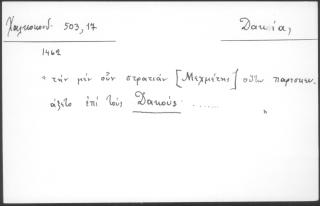 Χαλκοκονδ. 503, 17 Δακία,
1462
* τὴν μὲν οὖν στρατιὰν [Μεχμέτης] οὕτω παρεσκευ-
άζετο ἐπὶ τοὺς Δᾶκας ......
"